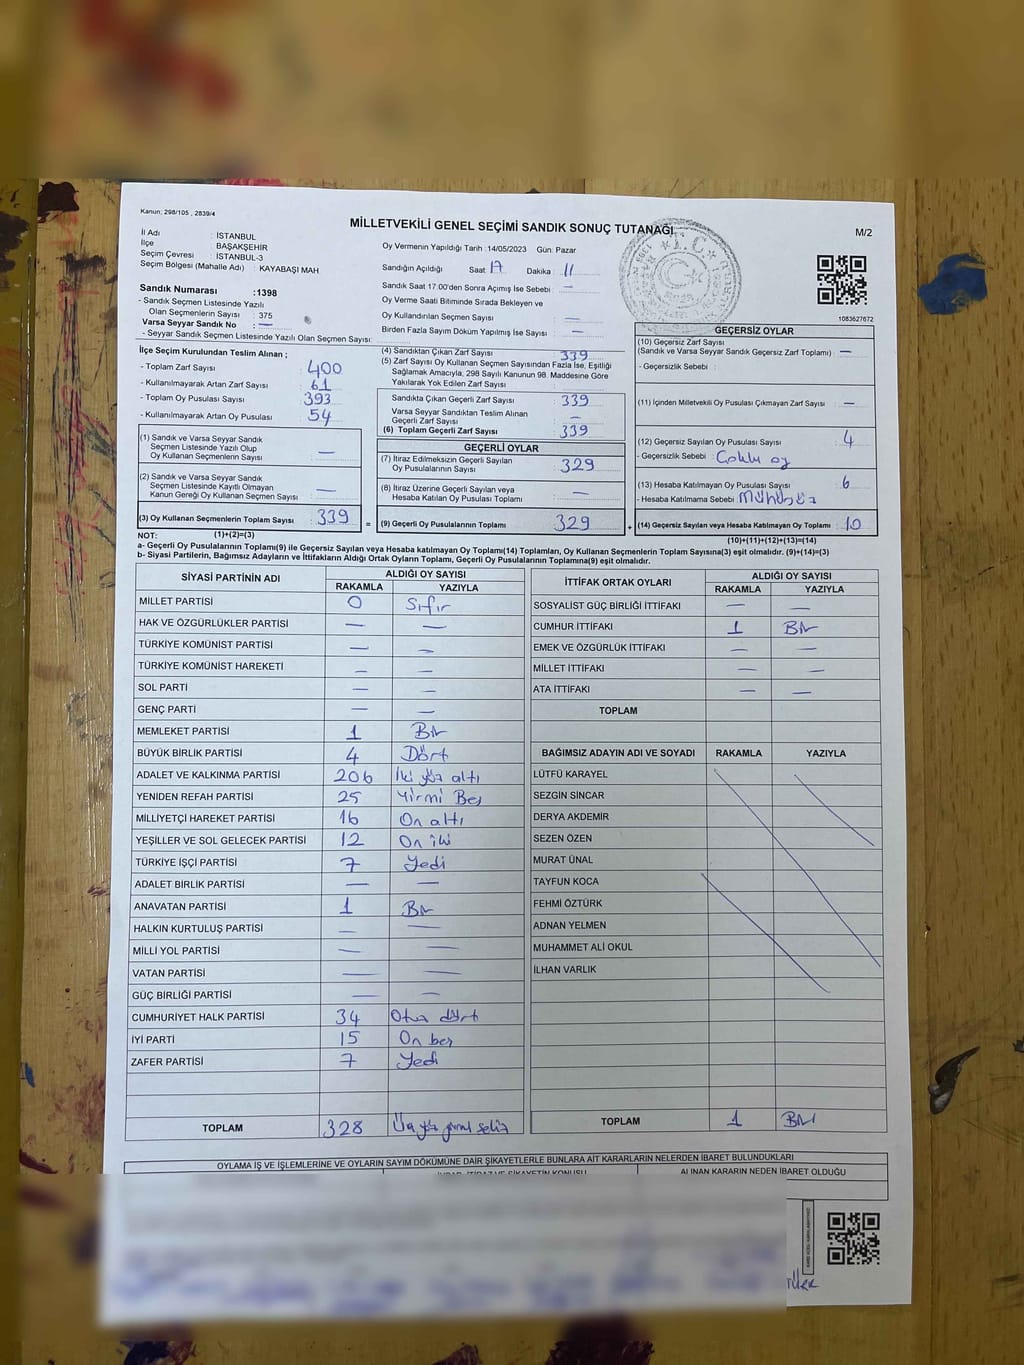 Kanun; 298/105 , 2839/4
MİLLETVEKİLİ GENEL SEÇİMİ SANDIK SONUÇ TUTANAĞI
M/2
İl Adı : İSTANBUL
İlçe : BAŞAKŞEHİR
Seçim Çevresi : İSTANBUL-3
Seçim Bölgesi (Mahalle Adı) : KAYABAŞI MAH
Sandık Numarası :1398
- Sandık Seçmen Listesinde Yazılı
Olan Seçmenlerin Sayısı : 375
Varsa Seyyar Sandık No : —
- Seyyar Sandık Seçmen Listesinde Yazılı Olan Seçmen Sayısı:
Oy Vermenin Yapıldığı Tarih :14/05/2023 Gün: Pazar
Sandığın Açıldığı Saat 17 Dakika : 11
Sandık Saat 17.00'den Sonra Açımış İse Sebebi : —
Oy Verme Saati Bitiminde Sırada Bekleyen ve
Oy Kullandırılan Seçmen Sayısı : —
Birden Fazla Sayım Döküm Yapılmış İse Sayısı : —
1083627672
İlçe Seçim Kurulundan Teslim Alınan ;
- Toplam Zarf Sayısı : 400
- Kullanılmayarak Artan Zarf Sayısı : 61
- Toplam Oy Pusulası Sayısı : 393
- Kullanılmayarak Artan Oy Pusulası : 54
(1) Sandık ve Varsa Seyyar Sandık
Seçmen Listesinde Yazılı Olup
Oy Kullanan Seçmenlerin Sayısı : —
(2) Sandık ve Varsa Seyyar Sandık
Seçmen Listesinde Kayıtlı Olmayan
Kanun Gereği Oy Kullanan Seçmen Sayısı : —
(3) Oy Kullanan Seçmenlerin Toplam Sayısı : 339 =
(4) Sandıktan Çıkan Zarf Sayısı : 339
(5) Zarf Sayısı Oy Kullanan Seçmen Sayısından Fazla İse, Eşitliği
Sağlamak Amacıyla, 298 Sayılı Kanunun 98. Maddesine Göre
Yakılarak Yok Edilen Zarf Sayısı :
Sandıkta Çıkan Geçerli Zarf Sayısı : 339
Varsa Seyyar Sandıktan Teslim Alınan
Geçerli Zarf Sayısı : —
(6) Toplam Geçerli Zarf Sayısı : 339
GEÇERLİ OYLAR
(7) İtiraz Edilmeksizin Geçerli Sayılan
Oy Pusulalarının Sayısı : 329
(8) İtiraz Üzerine Geçerli Sayılan veya
Hesaba Katılan Oy Pusulası Toplamı : —
(9) Geçerli Oy Pusulalarının Toplamı : 329 +
GEÇERSİZ OYLAR
(10) Geçersiz Zarf Sayısı
(Sandık ve Varsa Seyyar Sandık Geçersiz Zarf Toplamı) : —
- Geçersizlik Sebebi :
(11) İçinden Milletvekili Oy Pusulası Çıkmayan Zarf Sayısı : —
(12) Geçersiz Sayılan Oy Pusulası Sayısı : 4
- Geçersizlik Sebebi : Çoklu oy
(13) Hesaba Katılmayan Oy Pusulası Sayısı : 6
- Hesaba Katılmama Sebebi : Mühürsüz
(14) Geçersiz Sayılan veya Hesaba Katılmayan Oy Toplamı : 10
NOT: (1)+(2)=(3)
(10)+(11)+(12)+(13)=(14)
a- Geçerli Oy Pusulalarının Toplamı(9) ile Geçersiz Sayılan veya Hesaba katılmayan Oy Toplamı(14) Toplamları, Oy Kullanan Seçmenlerin Toplam Sayısına(3) eşit olmalıdır. (9)+(14)=(3)
b- Siyasi Partilerin, Bağımsız Adayların ve İttifakların Aldığı Ortak Oyların Toplamı, Geçerli Oy Pusulalarının Toplamına(9) eşit olmalıdır.
SİYASİ PARTİNİN ADI ALDIĞI OY SAYISI
RAKAMLA YAZIYLA
MİLLET PARTİSİ 0 Sıfır
HAK VE ÖZGÜRLÜKLER PARTİSİ — —
TÜRKİYE KOMÜNİST PARTİSİ — —
TÜRKİYE KOMÜNİST HAREKETİ — —
SOL PARTİ — —
GENÇ PARTİ — —
MEMLEKET PARTİSİ 1 Bir
BÜYÜK BİRLİK PARTİSİ 4 Dört
ADALET VE KALKINMA PARTİSİ 206 İki yüz altı
YENİDEN REFAH PARTİSİ 25 Yirmi Beş
MİLLİYETÇİ HAREKET PARTİSİ 16 On altı
YEŞİLLER VE SOL GELECEK PARTİSİ 12 On iki
TÜRKİYE İŞÇİ PARTİSİ 7 Yedi
ADALET BİRLİK PARTİSİ — —
ANAVATAN PARTİSİ 1 Bir
HALKIN KURTULUŞ PARTİSİ — —
MİLLİ YOL PARTİSİ — —
VATAN PARTİSİ — —
GÜÇ BİRLİĞİ PARTİSİ — —
CUMHURİYET HALK PARTİSİ 34 Otuz dört
İYİ PARTİ 15 On beş
ZAFER PARTİSİ 7 Yedi
TOPLAM 328 Üç yüz yirmi sekiz
İTTİFAK ORTAK OYLARI ALDIĞI OY SAYISI
RAKAMLA YAZIYLA
SOSYALİST GÜÇ BİRLİĞİ İTTİFAKI — —
CUMHUR İTTİFAKI 1 Bir
EMEK VE ÖZGÜRLÜK İTTİFAKI — —
MİLLET İTTİFAKI — —
ATA İTTİFAKI — —
TOPLAM
BAĞIMSIZ ADAYIN ADI VE SOYADI RAKAMLA YAZIYLA
LÜTFÜ KARAYEL
SEZGİN SİNCAR
DERYA AKDEMİR
SEZEN ÖZEN
MURAT ÜNAL
TAYFUN KOCA
FEHMİ ÖZTÜRK
ADNAN YELMEN
MUHAMMET ALİ OKUL
İLHAN VARLIK
TOPLAM 1 Bir
OYLAMA İŞ VE İŞLEMLERİNE VE OYLARIN SAYIM DÖKÜMÜNE DAİR ŞİKAYETLERLE BUNLARA AİT KARARLARIN NELERDEN İBARET BULUNDUKLARI
ALINAN KARARIN NEDEN İBARET OLDUĞU